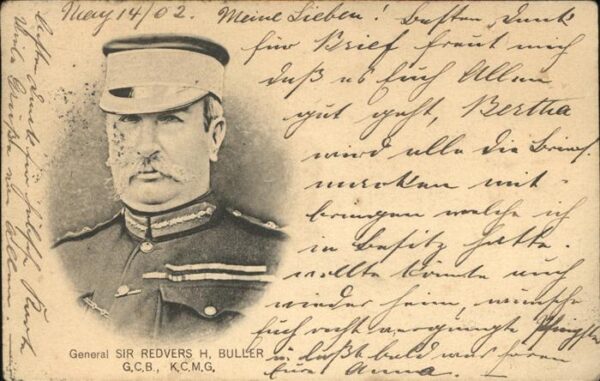 May 14/02. Meine Lieben! Besten Dank
für Brief freut mich
daß es Euch Allen
gut geht, Bertha
wird alle die Brief-
marken mit-
bringen welche ich
in besitz hatte.
wollte könnte auch
wieder heim, wünsche
Euch recht vergnügte Pfingsten
u. laßt bald was hören
Eure Anna.
Besten Dank für hübsche Karte
Viele Grüße an Allen.
General SIR REDVERS H, BULLER
G,C,B., K,C,M,G,